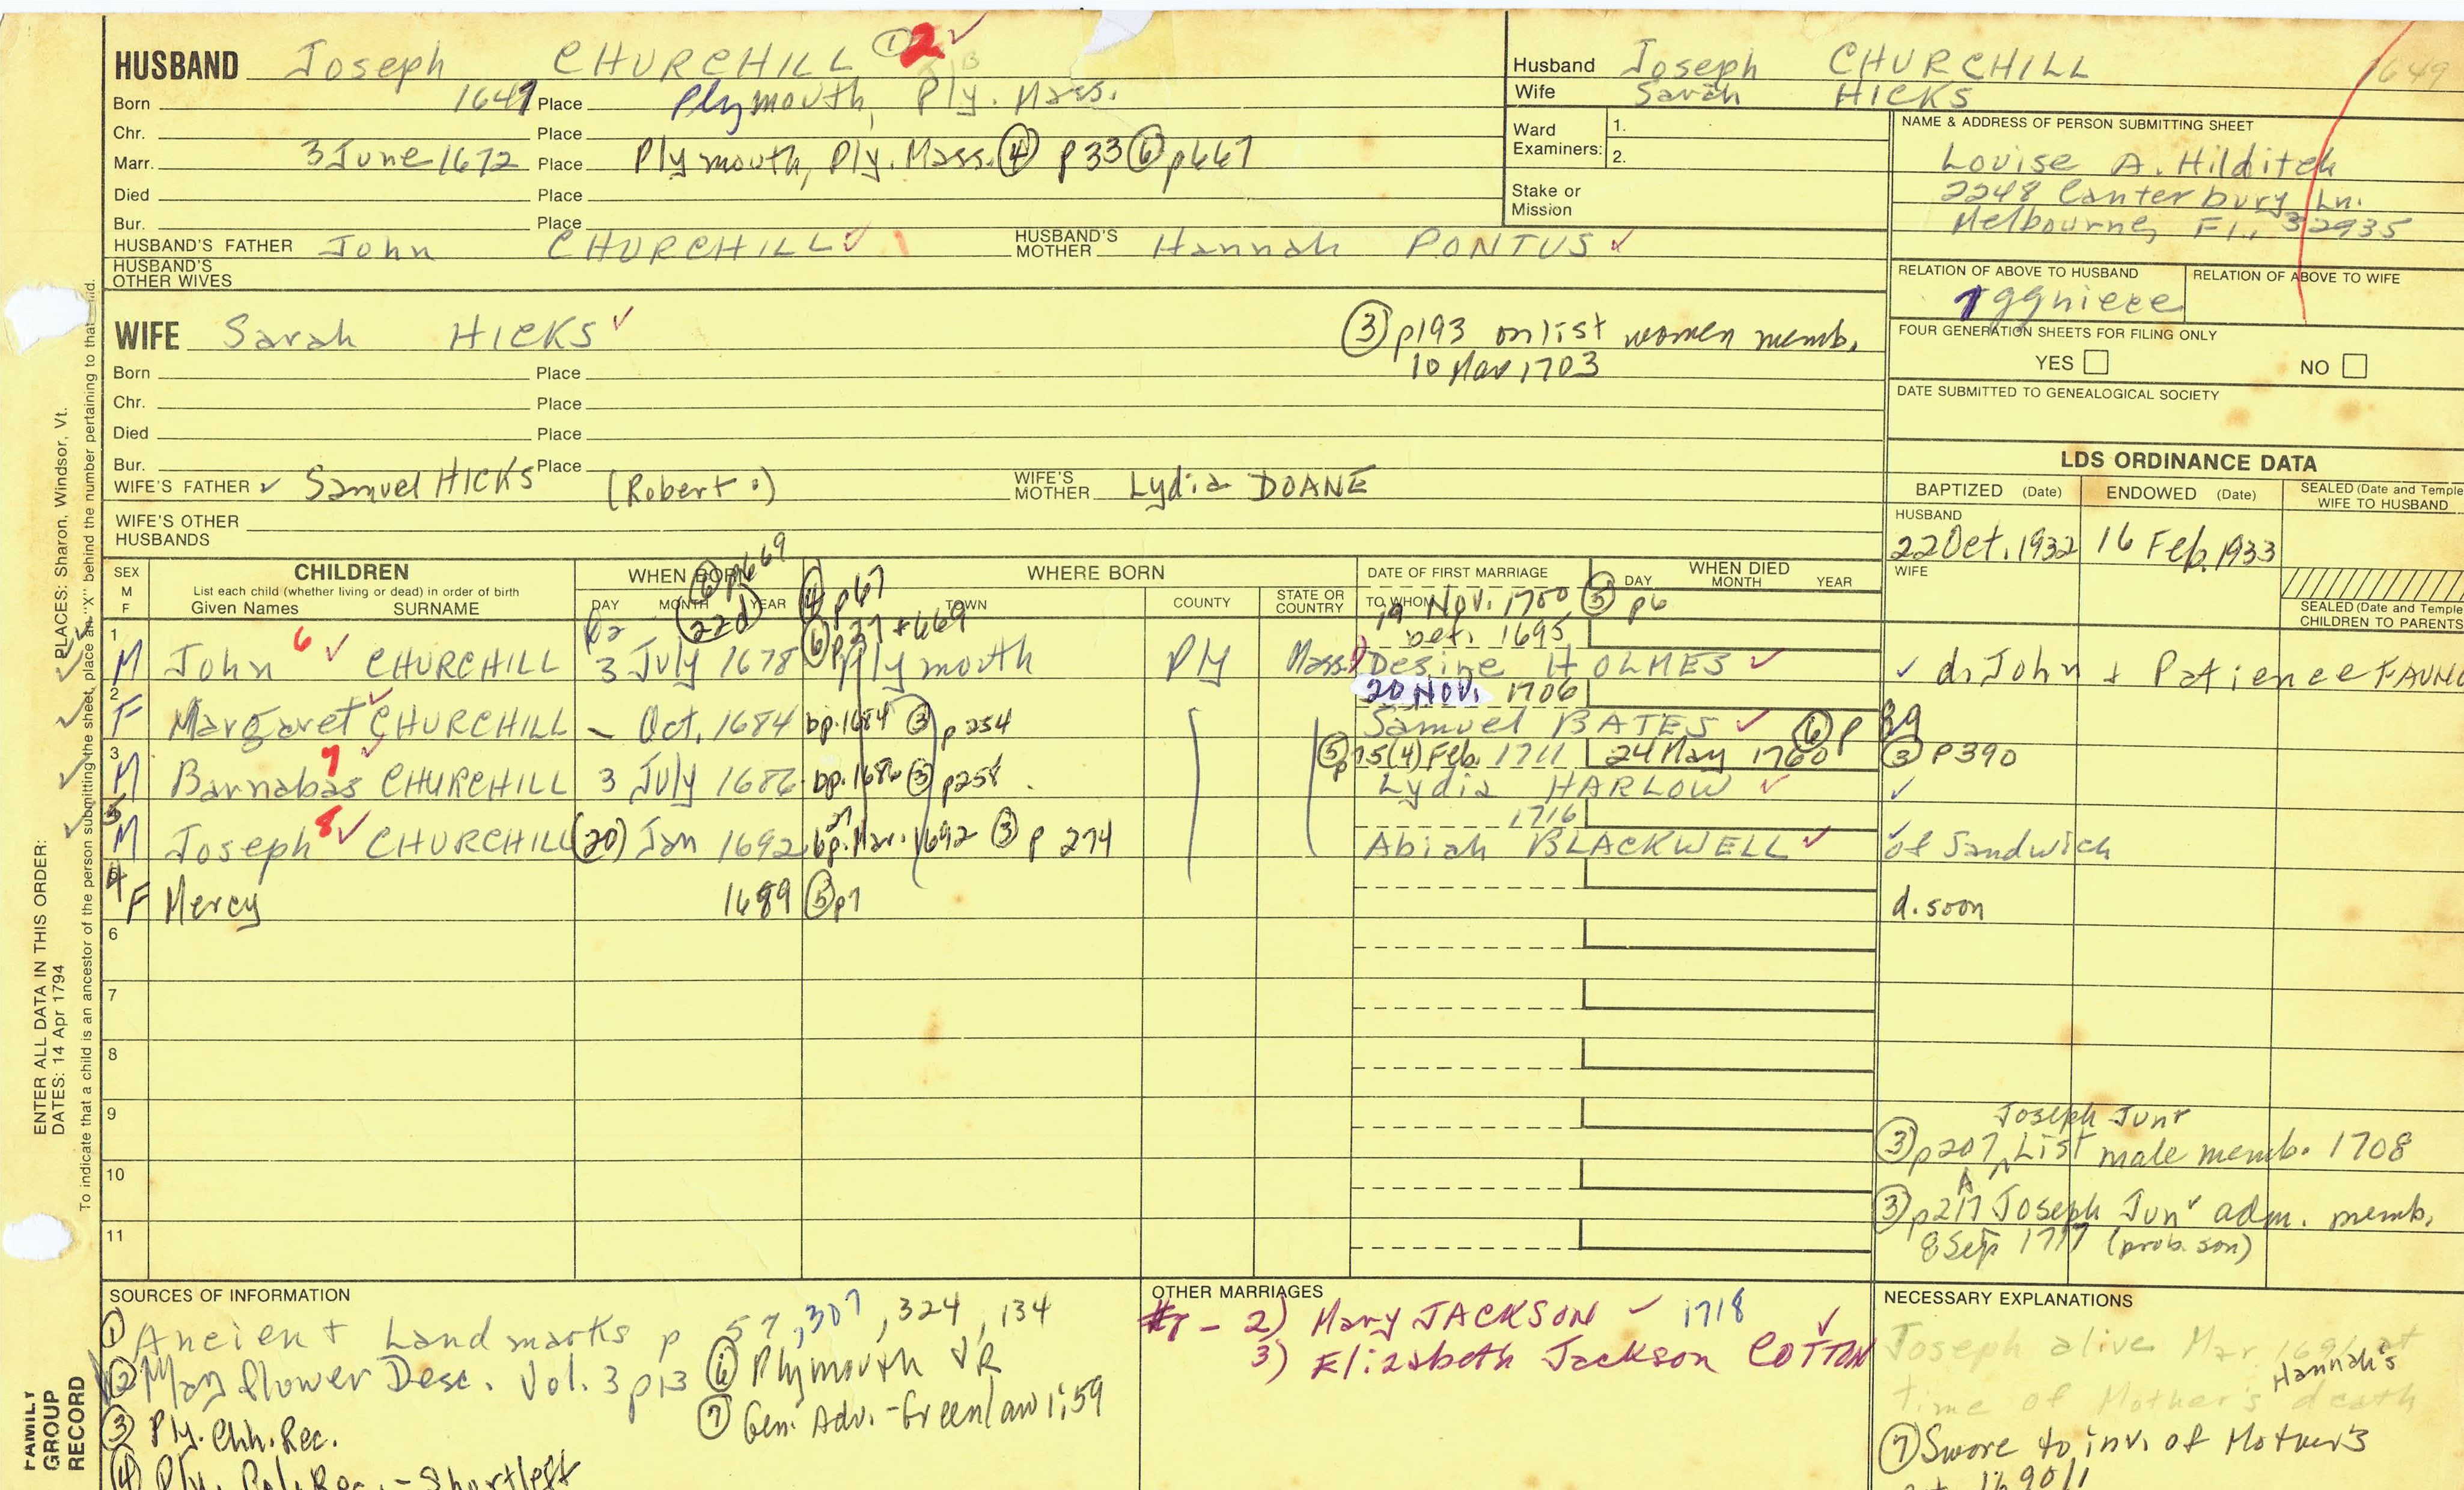 HUSBAND Joseph CHURCHILL ① 2 ✓
Born 1647 Place Plymouth, Ply. Mass.
Chr. Place
Marr. 3 June 1672 Place Plymouth, Ply. Mass. ④ p33 ⑥ p667
Died Place
Bur. Place
HUSBAND'S FATHER John CHURCHILL ✓ HUSBAND'S MOTHER Hannah PONTUS ✓
HUSBAND'S OTHER WIVES
Husband Joseph CHURCHILL 1649
Wife Sarah HICKS
Ward Examiners: 1.
2.
Stake or Mission
NAME & ADDRESS OF PERSON SUBMITTING SHEET
Louise A. Hilditch
2248 Canterbury Ln.
Melbourne, Fl., 32935
RELATION OF ABOVE TO HUSBAND RELATION OF ABOVE TO WIFE
7ggniece
FOUR GENERATION SHEETS FOR FILING ONLY
YES NO
DATE SUBMITTED TO GENEALOGICAL SOCIETY
WIFE Sarah HICKS ✓
③ p193 on list women memb.
10 Mar 1703
Born Place
Chr. Place
Died Place
Bur. Place
WIFE'S FATHER ✓ Samuel HICKS (Robert ) WIFE'S MOTHER Lydia DOANE
WIFE'S OTHER HUSBANDS
LDS ORDINANCE DATA
BAPTIZED (Date) ENDOWED (Date) SEALED (Date and Temple
WIFE TO HUSBAND
HUSBAND
22 Oct. 1932 16 Feb. 1933
WIFE
SEALED (Date and Temple
CHILDREN TO PARENTS
SEX M F CHILDREN
List each child (whether living or dead) in order of birth
Given Names SURNAME
WHEN BORN
DAY MONTH YEAR
⑥ p669
(22d)
WHERE BORN
TOWN COUNTY STATE OR COUNTRY
④ p67
⑥ p37 + 669
DATE OF FIRST MARRIAGE
TO WHOM
WHEN DIED
DAY MONTH YEAR
19 Nov. 1700 ⑤ p6
bef. 1695
1 M John 6 ✓ CHURCHILL 3 July 1678 Plymouth Ply Mass. Desire HOLMES ✓ ✓ d. John + Patience FAUNC
20 Nov. 1706
2 F Margaret ✓ CHURCHILL - Oct. 1684 bp. 1684 ③ p254 Samuel BATES ✓ ⑥ p 89
⑤ p 15(4) Feb. 1711 24 May 1760 ③ p390
3 M Barnabas 7 ✓ CHURCHILL 3 July 1686 bp. 1686 ③ p258 Lydia HARLOW ✓ ✓
1716
5 M Joseph 8 ✓ CHURCHILL (20) Jan 1692 bp. 27 Mar. 1692 ③ p 274 Abiah BLACKWELL ✓ of Sandwich
4 F Mercy 1689 ⑤ p7 d. soon
6
7
8
9
10
11
Joseph Junr
③ p207 ^ List male memb. 1708
③ p217 Joseph Junr adm. memb.
8 Sep 1717 (prob. son)
SOURCES OF INFORMATION
① Ancient Landmarks p 57, 307, 324, 134
② Mayflower Desc. Vol. 3 p13
③ Ply. Chh. Rec.
④ Ply. Col. Rec. - Shurtleff
⑥ Plymouth VR
⑦ Gen. Adv. - Greenlaw 1:59
OTHER MARRIAGES
2) Mary JACKSON ✓ 1718
3) Elizabeth Jackson COTTON ✓
NECESSARY EXPLANATIONS
Joseph alive Mar at
time of Mother's death
Hannah's
⑦ Swore to inv. of Mother's
1690/1
ENTER ALL DATA IN THIS ORDER:
DATES: 14 Apr 1794
PLACES: Sharon, Windsor, Vt.
To indicate that a child is an ancestor of the person submitting the sheet, place an "X" behind the number pertaining to that
FAMILY
GROUP
RECORD